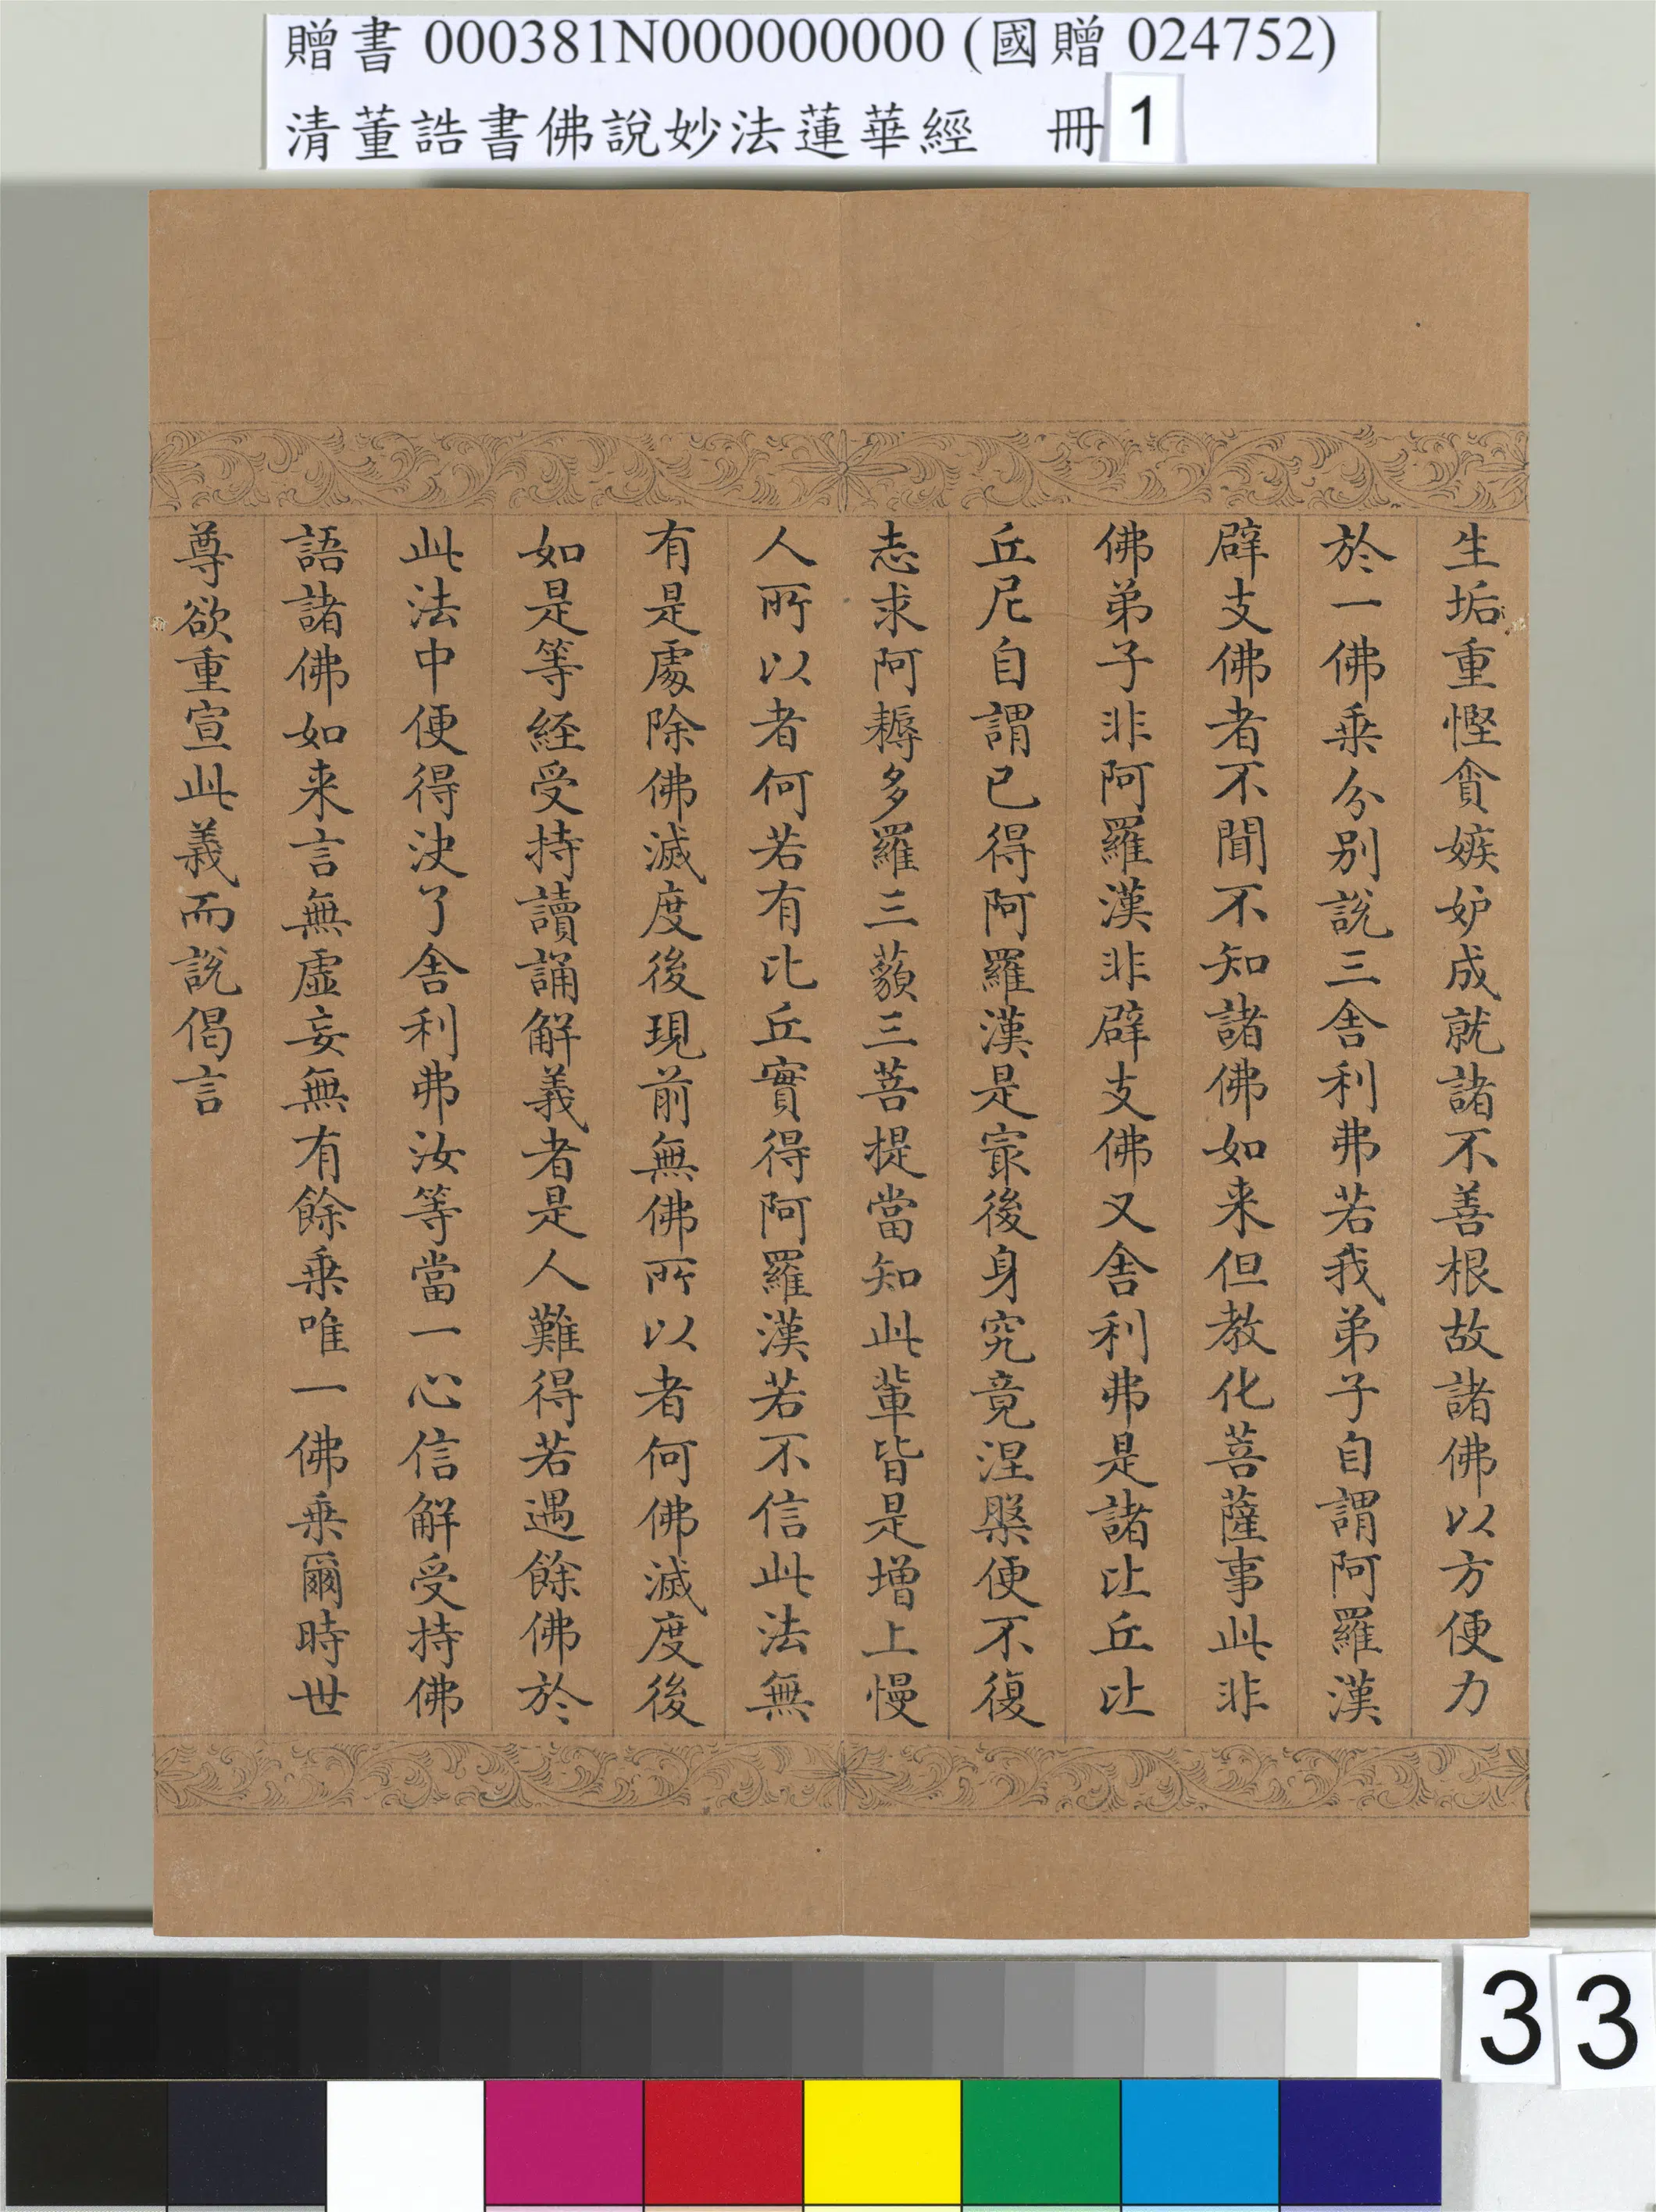 贈書 000381N000000000 (國贈 024752)
清董誥書佛說妙法蓮華經 冊 1
生垢重慳貪嫉妒成就諸不善根故諸佛以方便力
於一佛乗分別說三舎利弗若我弟子自謂阿羅漢
辟支佛者不聞不知諸佛如来但教化菩薩事此非
佛弟子非阿羅漢非辟支佛又舎利弗是諸比丘比
丘尼自謂已得阿羅漢是寂後身究竟涅槃便不復
志求阿耨多羅三藐三菩提當知此輩皆是增上慢
人所以者何若有比丘實得阿羅漢若不信此法無
有是處除佛滅度後現前無佛所以者何佛滅度後
如是等経受持讀誦解義者是人難得若遇餘佛於
此法中便得決了舎利弗汝等當一心信解受持佛
語諸佛如来言無虛妄無有餘乗唯一佛乗爾時世
尊欲重宣此義而說偈言
33